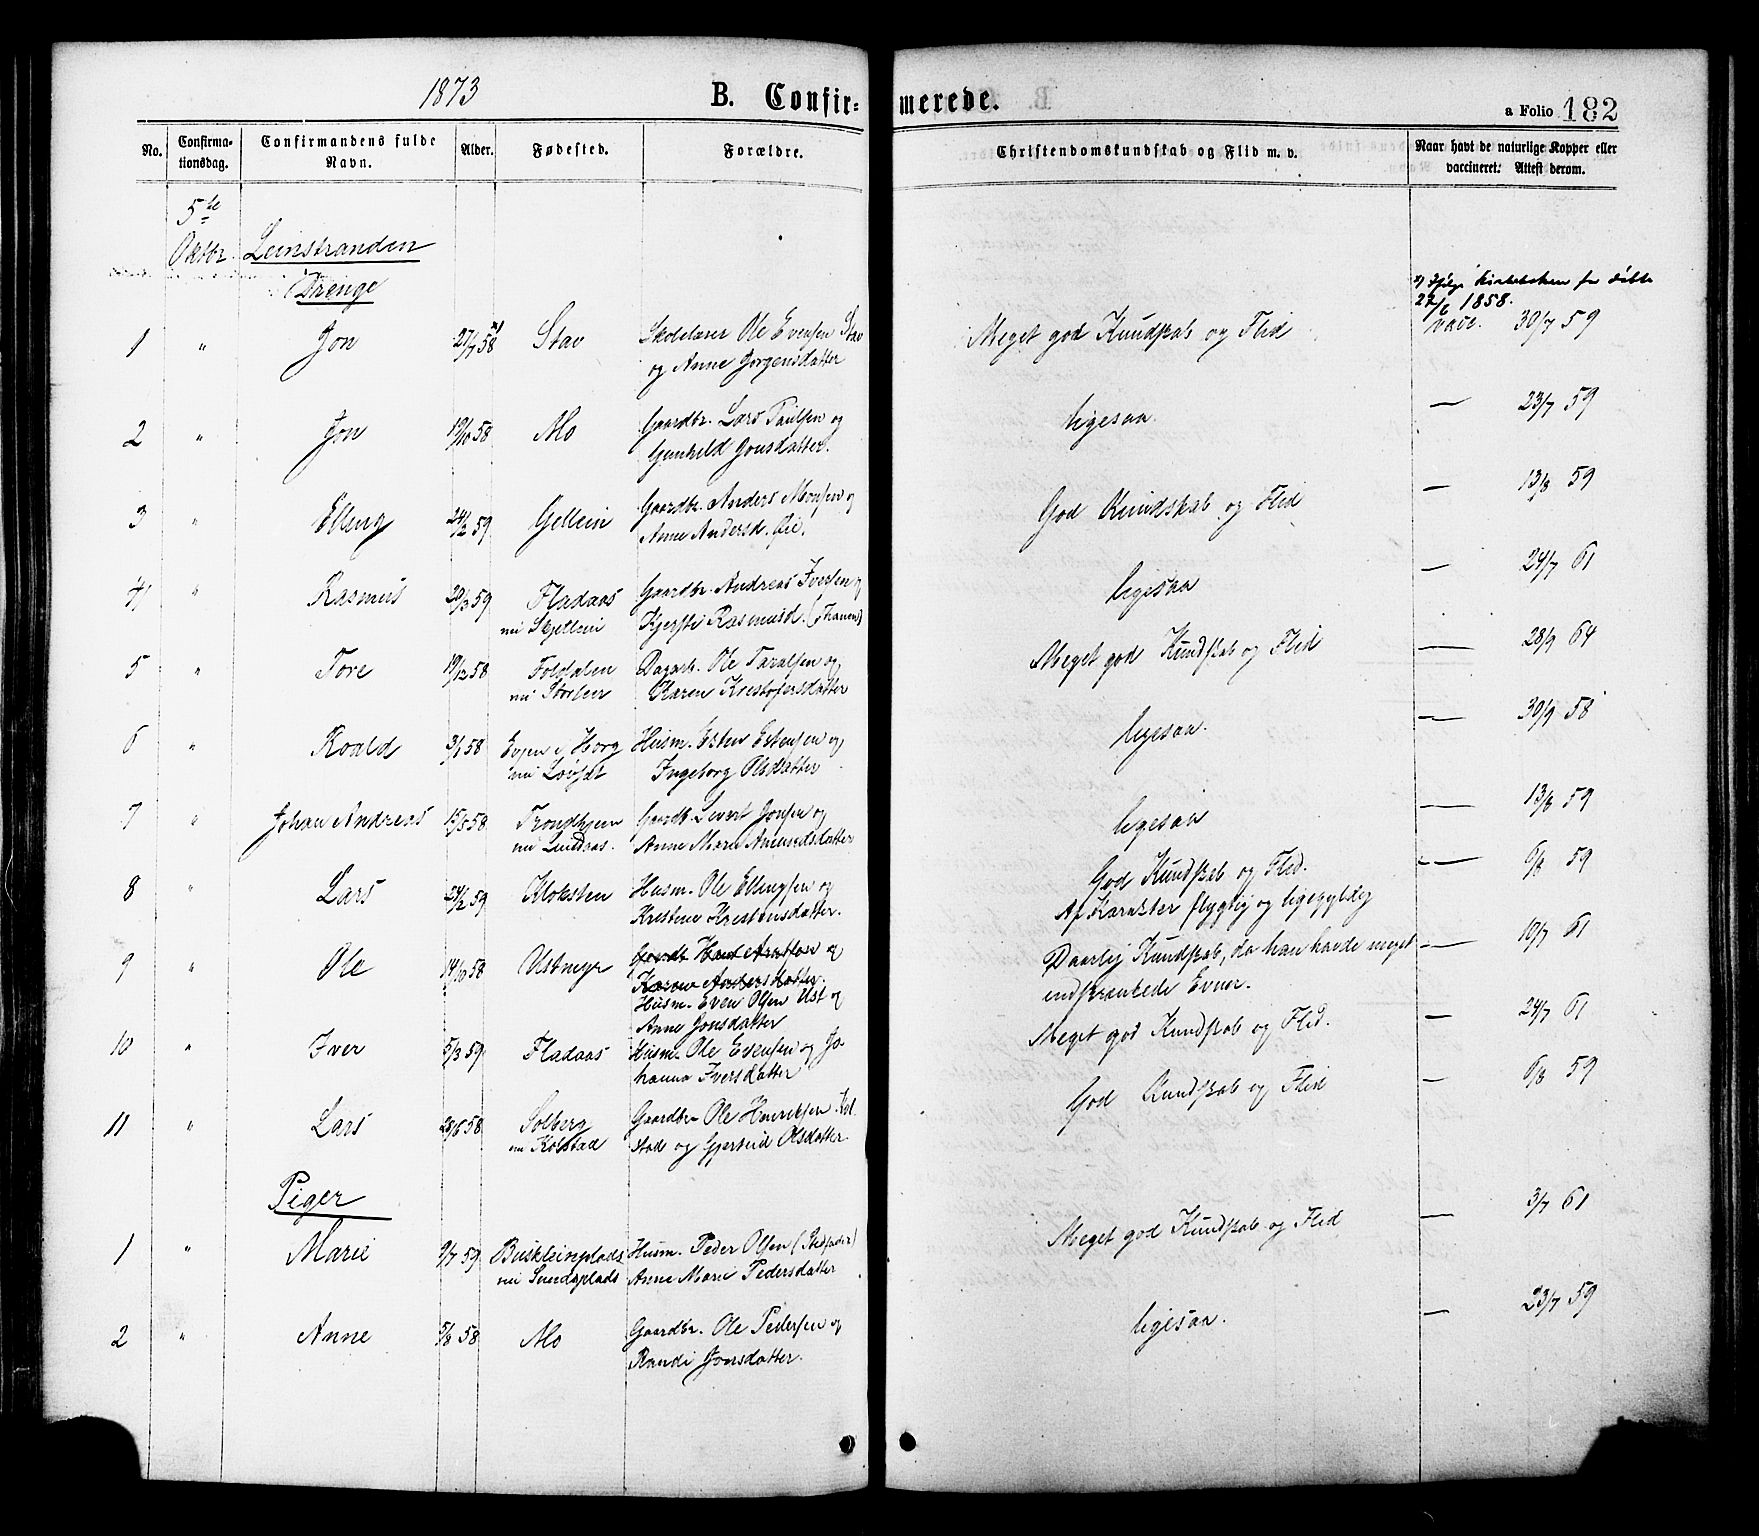 1873
B. Confir-
merede.
a Folio 182
No.
Confirma-
tionsdag.
Confirmandens fulde
Navn.
Alder.
Fødested.
Forældre.
Christendomskundskab og Flid m. v.
Naar havt de naturlige Kopper eller
vaccineret: Attest derom.
5te
Oktbr.
Leinstranden
Drenge
x) Ifølge Kirkeboken for døbte
1858.
1 " Jon 27/7 58 x) Stav Skolelærer Ole Evensen Stav
og Anne Jørgensdatter
Meget god Kundskab og Flid
vacc. 30/7 59
2 " Jon 19/10 58 Mo Gaardbr. Lars Paulsen og
Gunhild Jonsdatter.
ligesaa.
— 23/7 59
3 " Elling 24/2 59 Gellein Gaardbr. Anders Monsen og
Anne Andersd. Øie.
God Kundskab og Flid
— 13/8 59
4 " Rasmus 20/3 59 Fladaas
nu Skjellein
Gaardbr. Andreas Iversen og
Kjersti Rasmusd.
ligesaa
— 24/7 61
5 " Tore 19/12 58 Foldalen
nu Storler
Dagarb. Ole Taralsen og
Karen Kristofersdatter
Meget god Kundskab og Flid
— 28/9 64
6 " Roald 3/1 58 Evjen i Horg
nu
Husm. Esten Estensen og
Ingeborg Olsdatter
ligesaa.
— 30/9 58
7 " Johan Andreas 15/5 58 Trondhjem
nu Lindaas.
Gaardb. Sivert Jonsen og
Anne Marie Amundsdatter
ligesaa
— 13/8 59
8 " Lars 24/2 59 Kloksten Husm. Ole Ellingsen og
Kristine Kristensdatter.
God Kundskab og Flid.
Af Karakter flygtig og ligegyldig
— 6/8 59
9 " Ole 14/10 58 Ustmyr
og
Karen Andersdatter.
Husm. Even Olsen Ust og
Anne Jonsdatter
Daarlig Kundskab, da han havde meget
indskrænkede Evner.
— 10/7 61
10 " Iver 5/3 59 Fladaas Husm. Ole Evensen og Jo-
hanna Iversdatter
Meget god Kundskab og Flid.
— 24/7 61
11 " Lars 28/8 58 Solberg
nu Kolstad
Gaardbr. Ole Henriksen Kol-
stad og Gjertrud Olsdatter
God Kundskab og Flid
— 6/8 59
Piger
1 " Marie 2/7 59 Buskleinplads
nu Sundsplads
Husm. Peder Olsen (Stedfader)
Anne Marie Pedersdatter
Meget god Kundskab og Flid
— 3/7 61
2 " Anne 5/8 58 Mo Gaardbr. Ole Pedersen og
Randi Jonsdatter.
ligesaa.
— 23/7 59